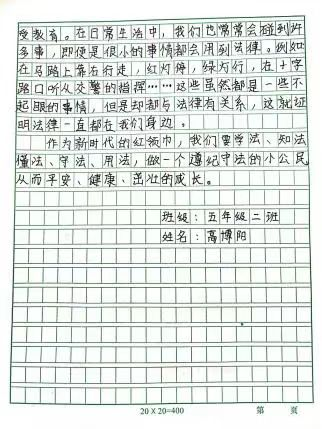 受教育。在日常生活中，我们也常常会碰到许
多事，即便是很小的事情都会用到法律。例如
在马路上靠右行走，红灯停，绿灯行，在十字
路口听从交警的指挥……这些虽然都是一些不
起眼的事情，但是却都与法律有关系，这就证
明法律一直都在我们身边。
作为新时代的红领巾，我们要学法、知法
懂法、守法、用法，做一个遵纪守法的小公民
从而平安、健康、茁壮的成长。
班级：五年级二班
姓名：高博阳
20×20=400 第 页